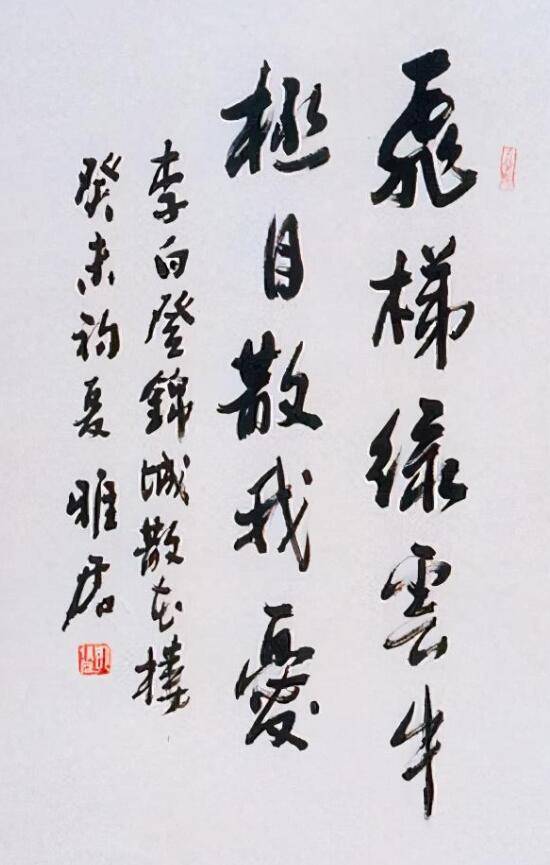 飛梯綠雲中
極目散我憂
李白登錦城散花樓
癸未初夏 雅君